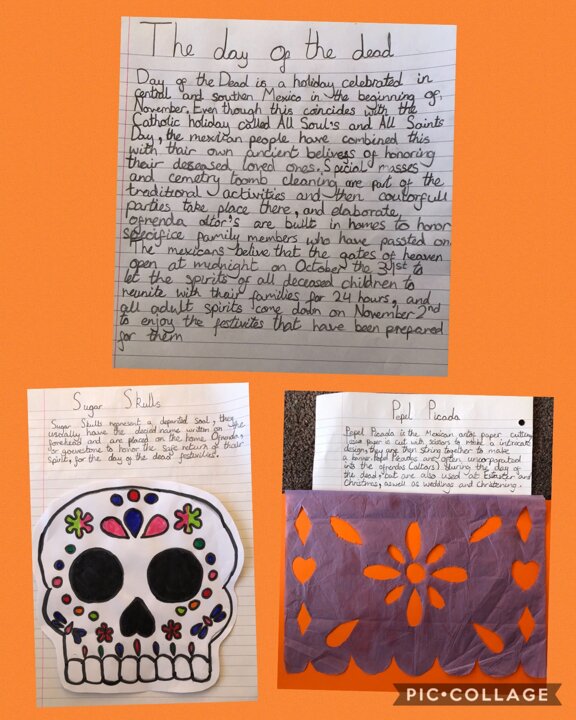 The day of the dead
Day of the Dead is a holiday celebrated in
central and southern Mexico in the beginning of
November. Even though this coincides with the
Catholic holiday called All Soul's and All Saints
Day, the mexican people have combined this
with their own ancient belivess of honoring
thair deseased loved ones. Spicial masses
and cemetry toomb cleaning are part of the
traditional activities and then coulorfull
parties take place there, and elaborate
ofrenda altor's are built in homes to honor
specifice family members who have passted on.
The mexicans belive that the gates of heaven
open at midnight on October the 31st to
let the spirits of all deceased children to
reunite with thair families for 24 hours, and
all adult spirits come down on November 2nd
to enjoy the festivites that have been prepared
for them
Sugar Skulls
Sugar Skulls represent a departed soul, they
usually have the name written on the
forehead and are placed on the home Ofrenda,
or gravestone to honor the safe return of thair
Spirit, for the day of the dead festivities.
Papel Picada
Papel Picada is the Mexican artof paper cutting
paper is cut with scissors to make a intricate
design, they are then string together to make
a banner. Papel Picados are often uncorporated
into the ofrendas (altars) during the day of
the dead, but are also used at Eatster and
Christmas, aswell as weddings and christening.
PIC•COLLAGE